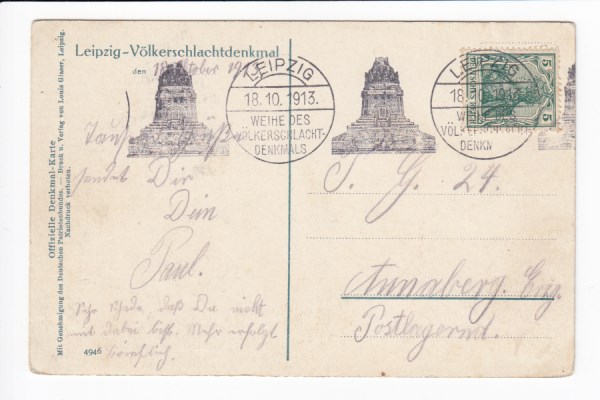 Leipzig-Völkerschlachtdenkmal
den 18. Oktober 1913
LEIPZIG
18.10.1913.
WEIHE DES
VÖLKERSCHLACHT-
DENKMALS
LEIPZIG
18.10.1913.
WEIHE DES
VÖLKERSCHLACHT-
DENKM
5 5
Tausend Grüße
sendet Dir
Dein
Paul.
Sehr schade, daß Du nicht
mit dabei bist. Mehr erfolgt
brieflich.
4946
S. G. 24.
Annaberg. Erzg.
Postlagernd.
Offizielle Denkmal-Karte
Mit Genehmigung des Deutschen Patriotenbundes. — Druck u. Verlag von Louis Glaser, Leipzig.
Nachdruck verboten.